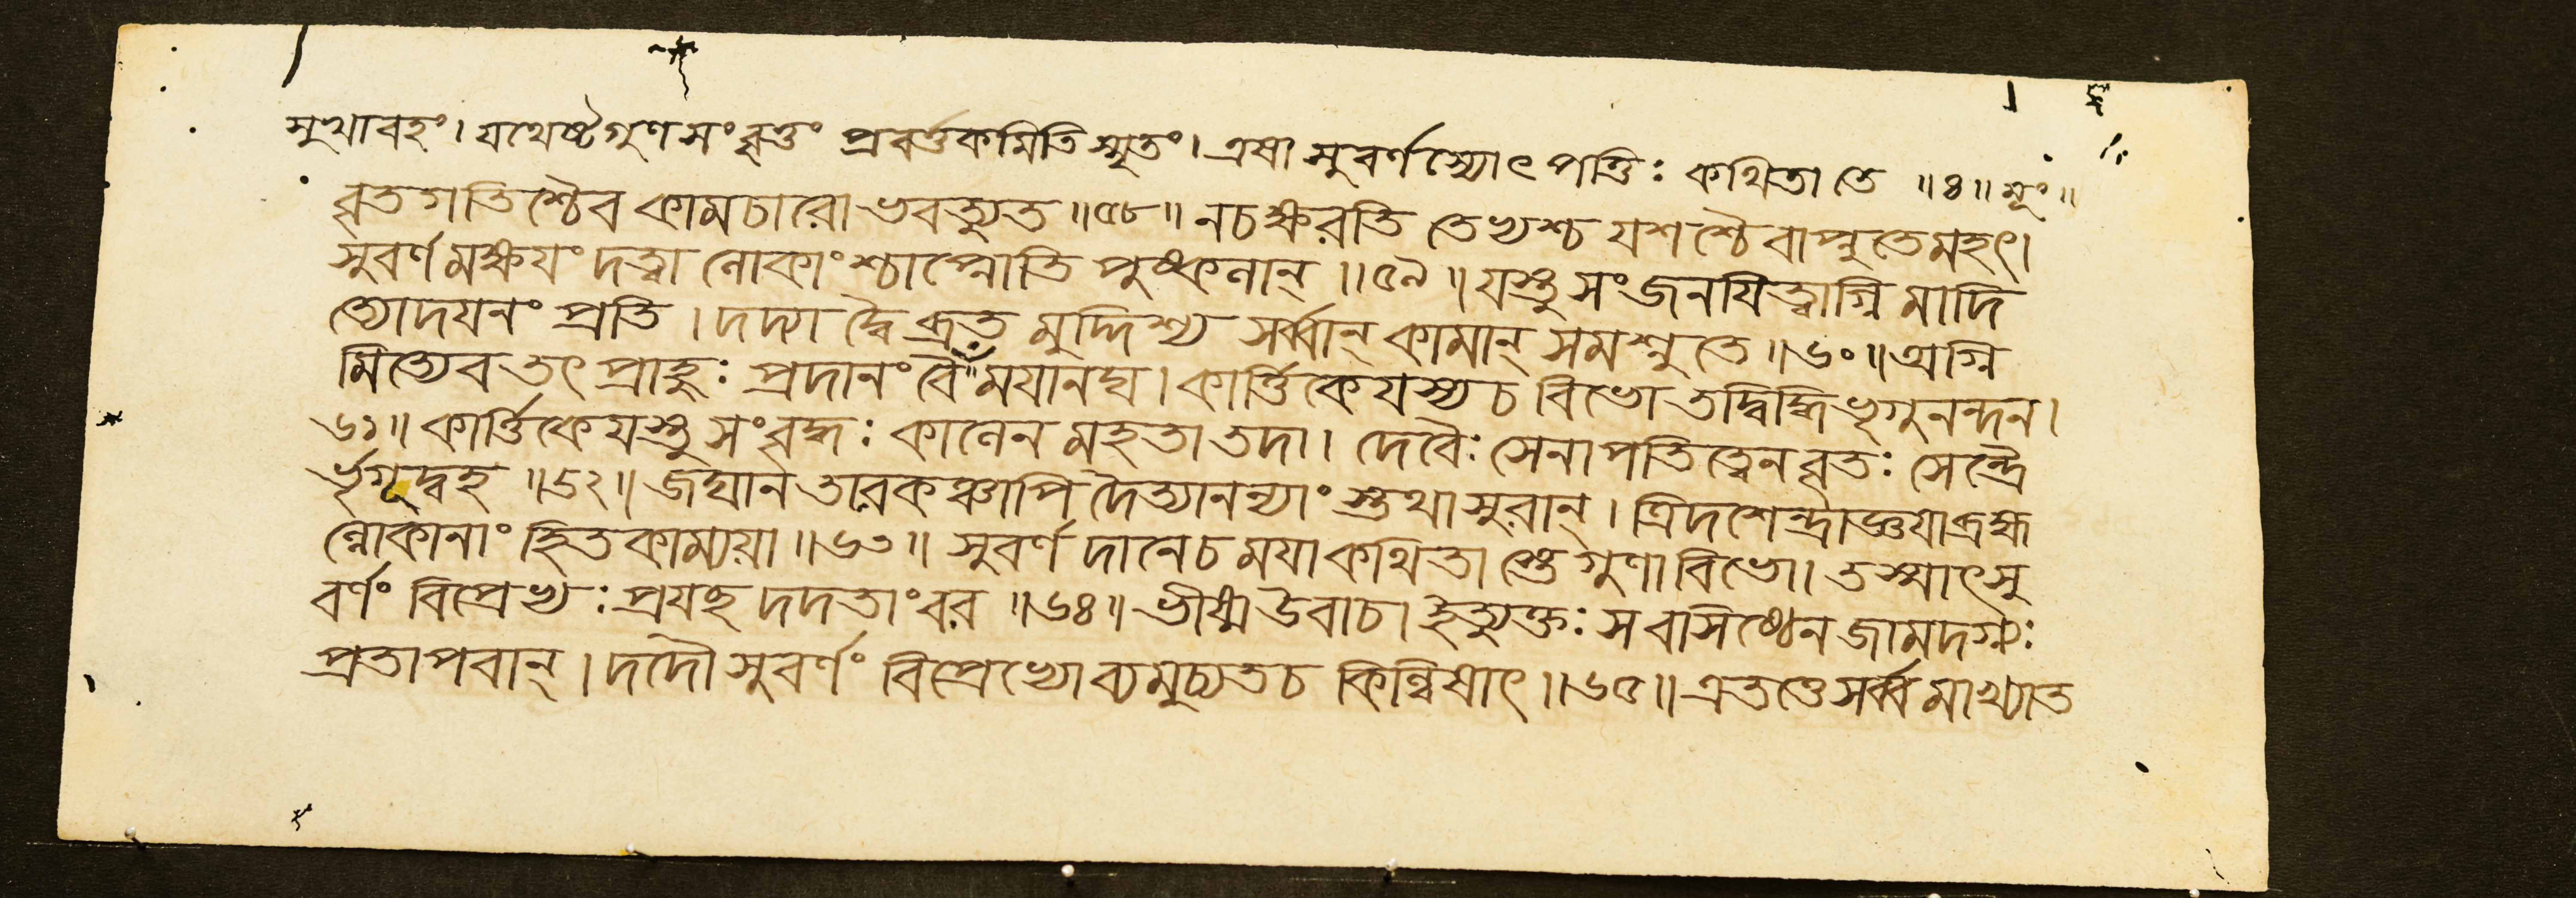 সুখাবহং। যথেষ্টগুণসংবৃত্তং প্রবর্ত্তকমিতি স্মৃতং। এষা সুবর্ণস্যোৎপত্তিঃ কথিতা তে ॥৪॥ মূং॥
বৃতগতিশ্চৈব কামচারো ভবত্যুত ॥৫৮॥ নচক্ষরতি তেভ্যশ্চ যশশ্চৈবাপ্নুতেমহৎ।
সুবর্ণমক্ষয়ং দত্ত্বা লোকাংশ্চাপ্নোতি পুষ্কলান্ ॥৫৯॥ যস্তু সংজনযিত্বাগ্নিমাদি
ত্যোদযনং প্রতি। দদ্যাদ্বৈব্রতমুদ্দিশ্য সর্ব্বান্ কামান্ সমশ্নুতে ॥৬০॥ অগ্নি
মিত্যেব তৎ প্রাহুঃ প্রদানং বৈ মযানঘ। কার্ত্তিকেযস্য চ বিভো তদ্বিদ্ধি ভৃগুনন্দন।
৬১॥ কার্ত্তিকেযস্তু সংবৃদ্ধঃ কালেন মহতা তদা। দেবৈঃ সেনাপতিত্বেন বৃতঃ সেন্দ্রৈ
র্ভৃগূদ্বহ ॥৬২॥ জঘান তারকঞ্চাপি দৈত্যানন্যাংস্তথাসুরান্। ত্রিদশেন্দ্রাজ্ঞযাব্রহ্ম
ল্লোকানাং হিতকাম্যয়া ॥৬৩॥ সুবর্ণদানেচ মযা কথিতাস্তে গুণা বিভো। তস্মাৎসু
বর্ণং বিপ্রেভ্যঃ প্রযচ্ছ দদতাংবর ॥৬৪॥ ভীষ্ম উবাচ। ইত্যুক্তঃ স বাসিষ্ঠেন জামদগ্ন্যঃ
প্রতাপবান্। দদৌ সুবর্ণং বিপ্রেভ্যো ব্যমুচ্যতচ কিল্বিষাৎ ॥৬৫॥ এতত্তে সর্ব্বমাখ্যাত